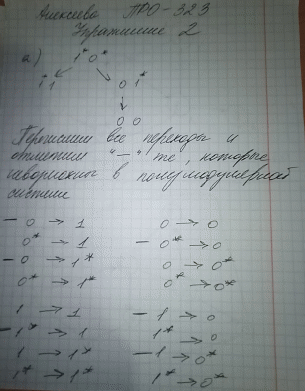 Алексеева ПРО-323
Упражнение 2
а) 1* 0*
1* 1 0 1*
0 0
Перепишем все переходы и
отметим "—" те, которые
в полумодулярной
системе
— 0 → 1 0 → 0
0* → 1 — 0* → 0
— 0 → 1* 0 → 0*
0* → 1* 0* → 0*
1 → 1 — 1 → 0
— 1* → 1 1* → 0
1 → 1* — 1 → 0*
1* → 1* 1* → 0*